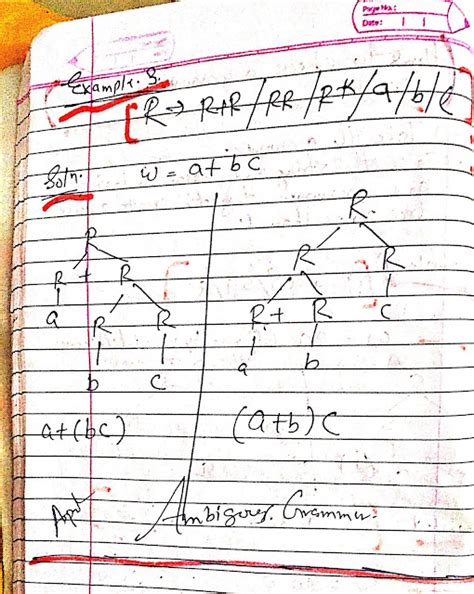 Page No.:
Date:
Example. 3.
R → R+R / RR / R* / a / b / C
Soln.
w = a + b C
R
R + R
a R R
b c
a+(bc)
R.
R R
R + R C
a b
(a+b) C
Ambigous. Grammar.